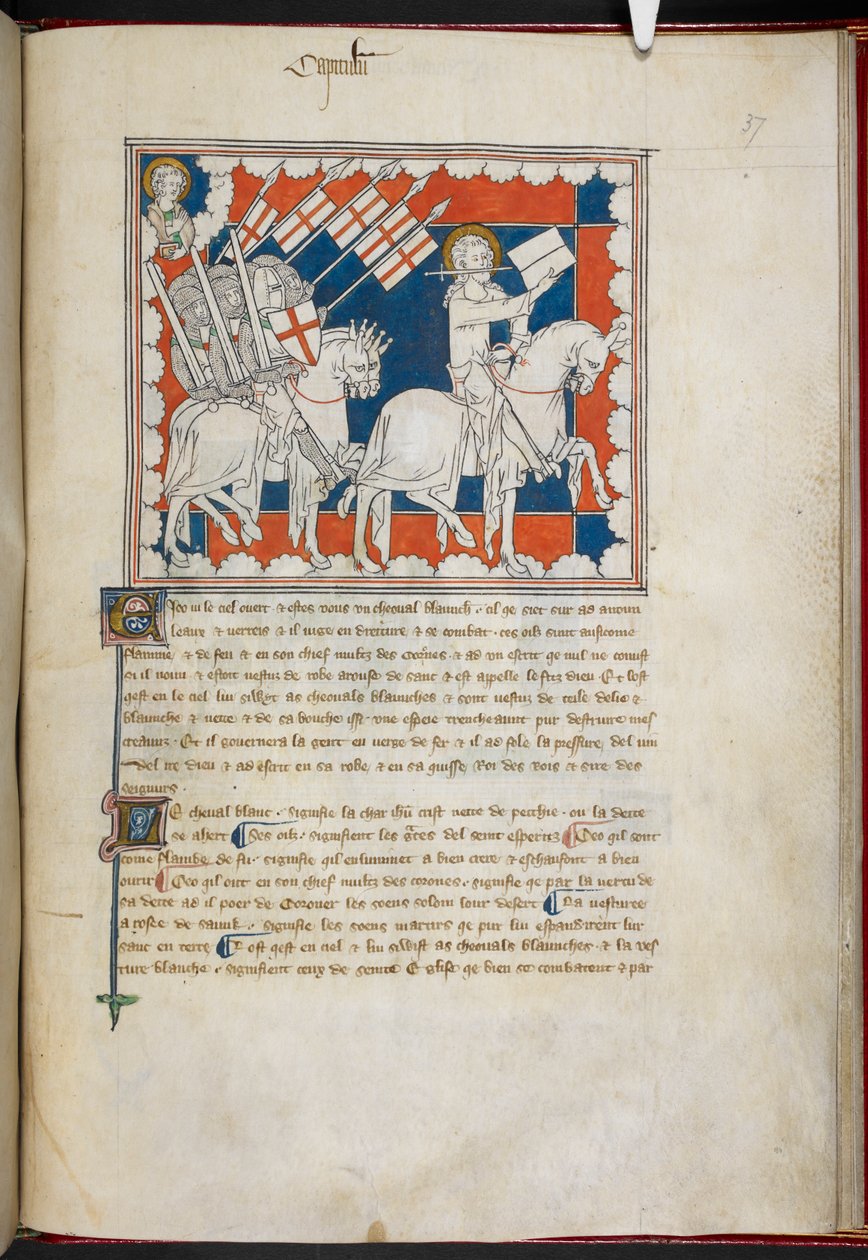 Capitulu
37
Jeo vi le ciel overt · & estes vous vn cheoual blaunch · cil qe siet sur ad anoun
leaux & verreis & il iuge en dreiture & se combat · ces oils sunt ausicome
flamme & de feu & en son chief multz des Corones · & ad vn escrit qe nul ne conust
si il noun & estoit vestuz de robe arouse de sanc & est appelle le fitz dieu · Et lost
qest en le ciel lui siwyt as cheouals blaunches & sont vestuz de teile delie &
blaunche & nette & de sa bouche issi vne espeie trencheaunt pur destruire mes
creaunz · Et il gouernera la gent en verge de fer & il ad fole la pressure del uin
del ire dieu & ad escrit en sa robe & en sa quisse Roi des Rois & sire des
seignurs ·
LE cheual blanc · signifie la char ihu crist nette de pecchie · ou la dette
se ahert Ses oilz · signifient les grces del seint espertz Ceo qil sont
come flambe de fu · signifie qil enluminet a bien crere & eschaufont a bien
ourir Ceo qil oitt en son chief multz des corones · signifie qe par la vertu de
sa dette ad il poer de Corouer les soens solom lour desert La vesture
arosee de saunk · signifie les soens martirs qe pur lui espaundirent lur
sanc en terre Lost qest en ciel & lui siwist as cheouals blaunches · & la ves
ture blanche · signifient ceux de seinte Eglise qe bien se combatent & par